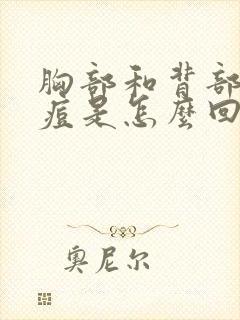 胸部和背部
痘是怎麼回
奥尼尔